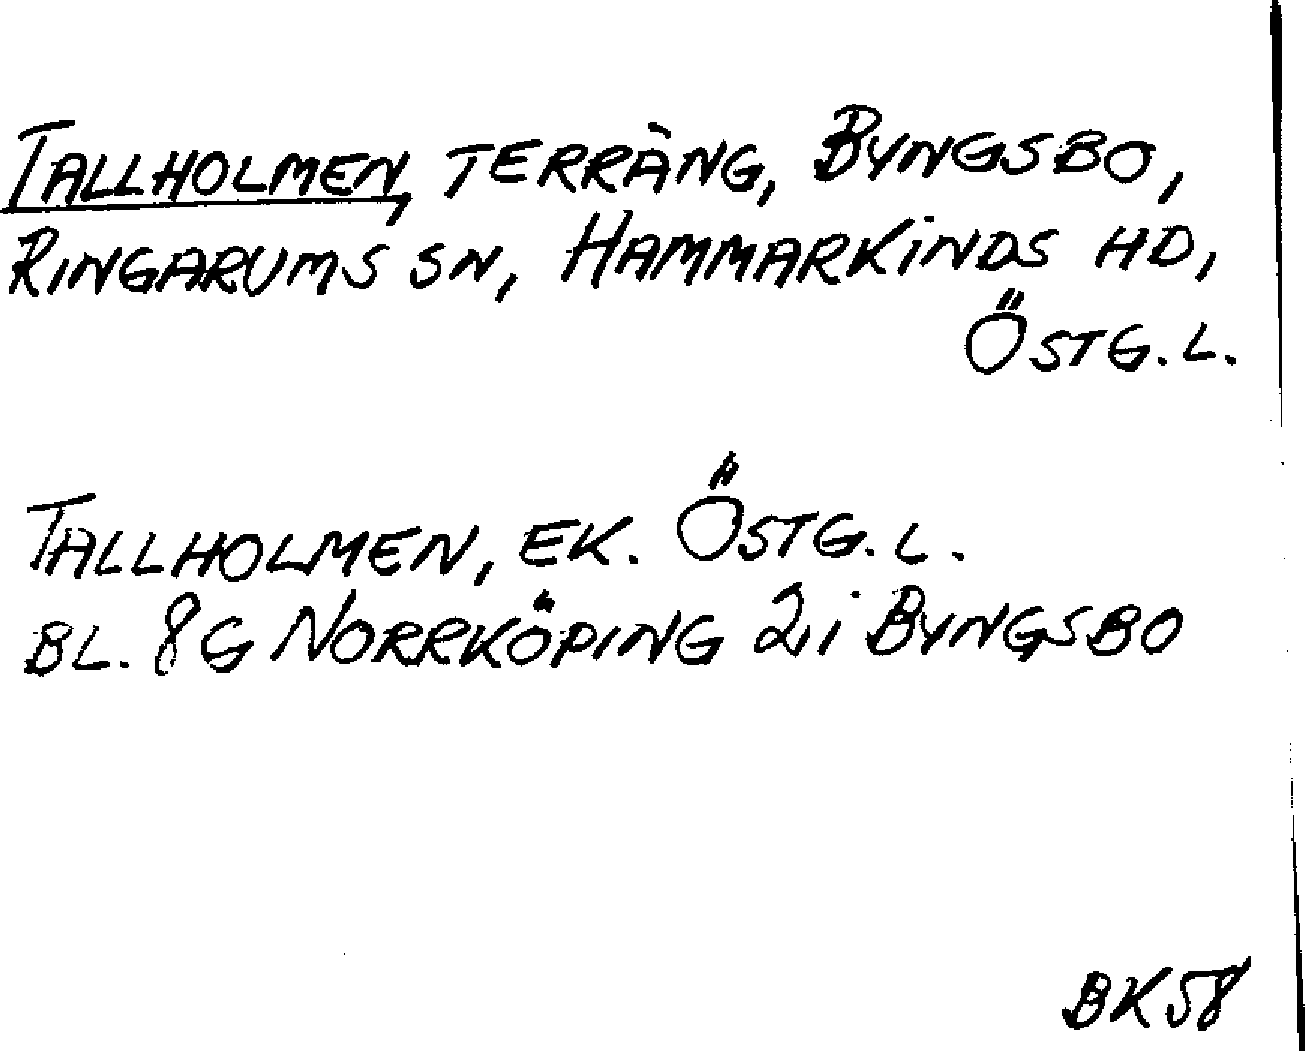 TALLHOLMEN, TERRÄNG, BYNGSBO,
RINGARUMS SN, HAMMARKINDS HD,
ÖSTG.L.
TALLHOLMEN, EK. ÖSTG.L.
BL. 8G NORRKÖPING 2i BYNGSBO
BK58